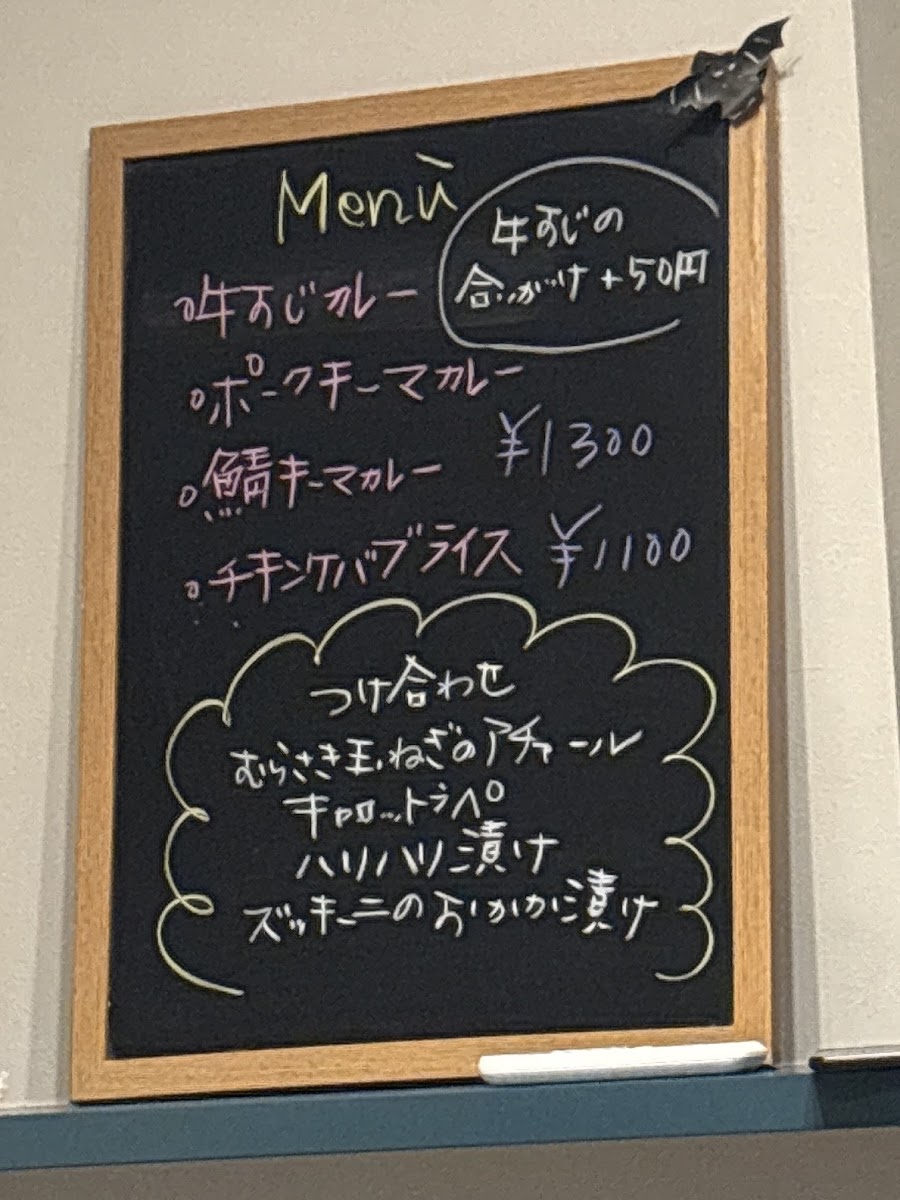 Menù
牛すじの
合いがけ+50円
○牛すじカレー
○ポークキーマカレー
¥1300
○鯖キーマカレー
○チキンケバブライス ¥1100
つけ合わせ
むらさき玉ねぎのアチャール
キャロットラペ
ハリハリ漬け
ズッキーニのおかか漬け